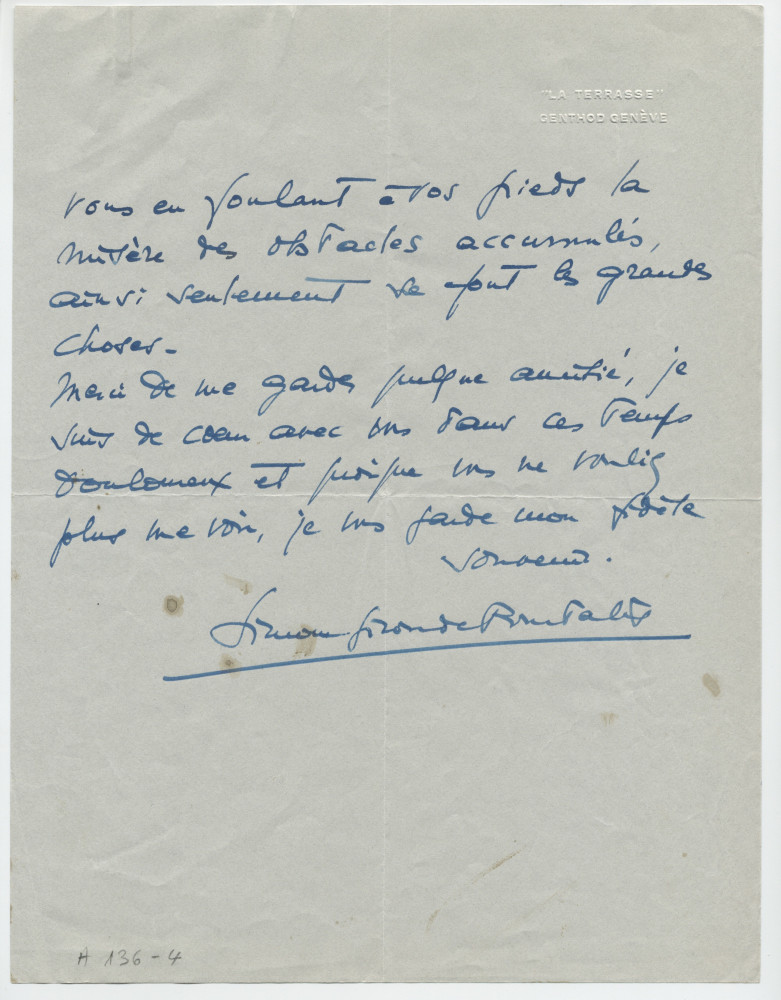 "LA TERRASSE"
GENTHOD GENÈVE
vous en foulant à vos pieds la
misère des obstacles accumulés,
ainsi seulement se font les grandes
choses.
Merci de me garder quelque amitié, je
suis de cœur avec vous dans ces temps
douloureux et quoique vous ne vouliez
plus me voir, je vous garde mon fidèle
souvenir.
Simon
A 136-4